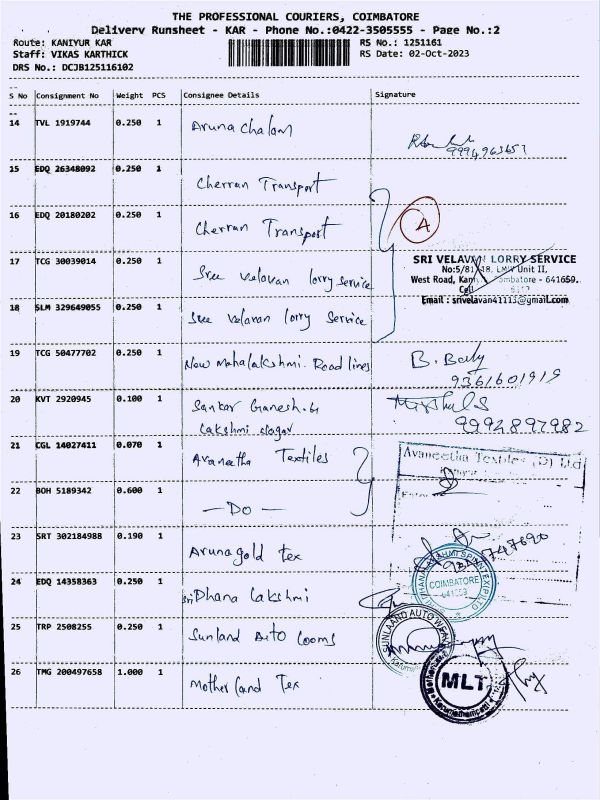 THE PROFESSIONAL COURIERS, COIMBATORE
Delivery Runsheet - KAR - Phone No.:0422-3505555 - Page No.:2
Route: KANIYUR KAR
RS No.: 1251161
Staff: VIKAS KARTHICK
RS Date: 02-Oct-2023
DRS No.: DCJB125116102
S No Consignment No Weight PCS Consignee Details Signature
14 TVL 1919744 0.250 1 Aruna Chalam
9994963657
15 EDQ 26348092 0.250 1 Cherran Transport
16 EDQ 20180202 0.250 1 Cherran Transport
4
17 TCG 30039014 0.250 1 Sree Velavan lorry service
SRI VELAVAN LORRY SERVICE
No:5/81 Unit II,
West Road, - 641659.
Email : srivelavan41113@gmail.com
18 SLM 329649055 0.250 1 Sree Velavan lorry Service
19 TCG 50477702 0.250 1 New Mahalakshmi Road lines
B.
9361601919
20 KVT 2920945 0.100 1 Sankar Ganesh.G
Lakshmi
9994897982
21 CGL 14027411 0.070 1 Avaneetha Textiles
Avaneetha Textiles (P) Ltd
22 BOH 5189342 0.600 1 — Do —
23 SRT 302184988 0.190 1 Arunagold tex
24 EDQ 14358363 0.250 1 Sri Dhana Lakshmi
COIMBATORE
25 TRP 2508255 0.250 1 Sunland Auto Looms
SUNLAAND AUTO
26 TMG 200497658 1.000 1 Mother land Tex
MLT